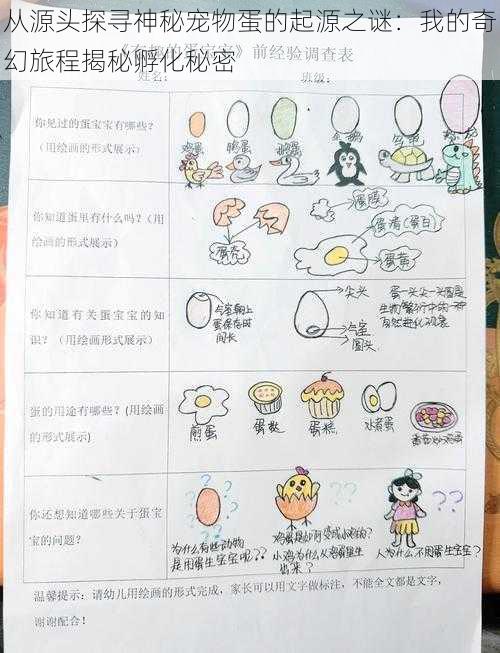 从源头探寻神秘宠物蛋的起源之谜：我的奇
幻旅程揭秘孵化秘密
前经验调查表
姓名：
班级：
你见过的蛋宝宝有哪些？
（用绘画的形式展示）
鸡蛋
鸭蛋
鹅蛋
企鹅
乌龟
恐龙
你知道蛋里有什么吗？（用
绘画的形式展示）
蛋壳
蛋膜
蛋清（蛋白）
蛋黄
你知道有关蛋宝宝的知
识？（用绘画形式展示）
气室朝上
蛋保存时
间长
尖头
气室
圆头
蛋一头尖一头圆是
蛋的用途有哪些？（用绘画
的形式展示）
煎蛋
蛋挞
蛋糕
水煮蛋
你还想知道哪些关于蛋宝
宝的问题？
为什么有些动物
是用蛋生宝宝呢？？
小鸡为什么从鸡蛋里生
出来？
人为什么不用蛋生宝宝？
温馨提示：请幼儿用绘画的形式完成，家长可以用文字做标注，不能全文都是文字，
谢谢配合！